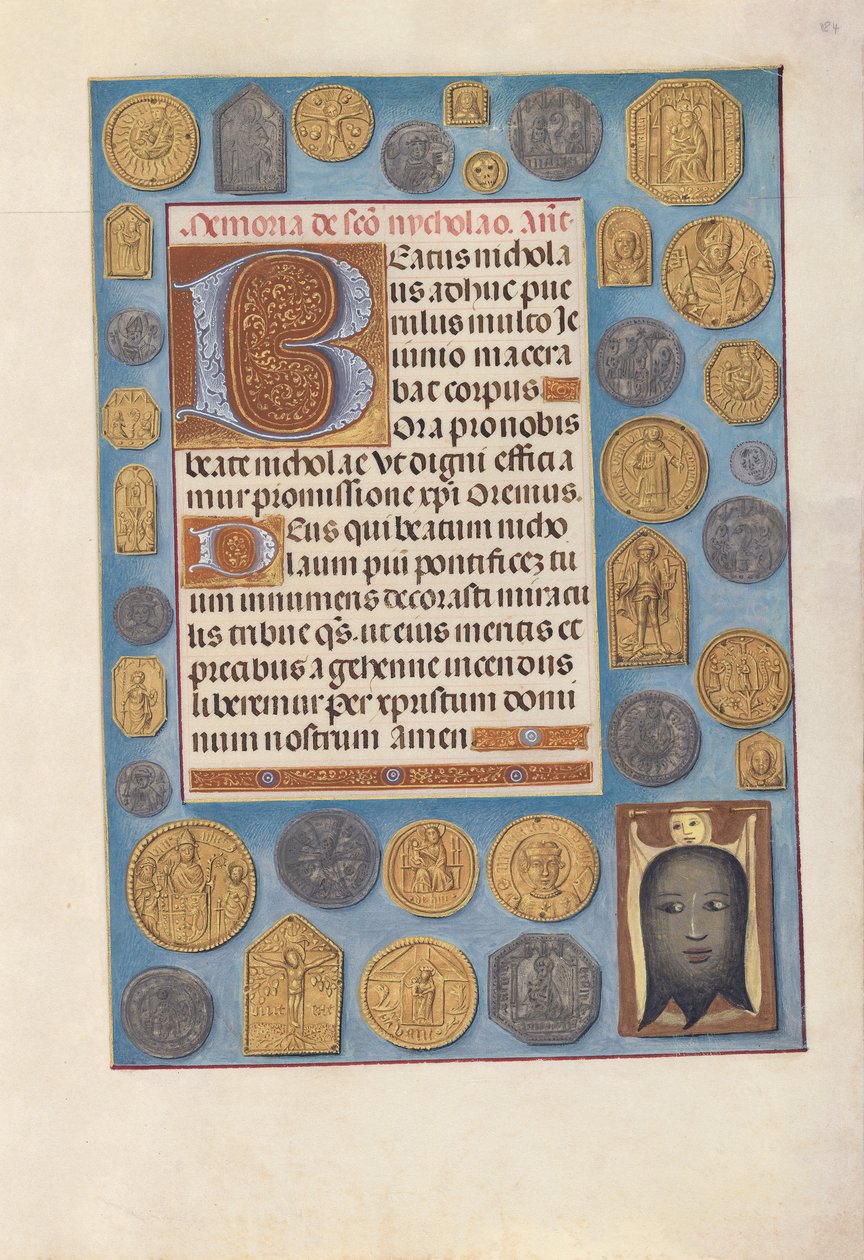 184
Memoria de sco nycholao. Ant
Beatus nichola
us adhuc pue
rulus multo Ie
iunio macera
bat corpus
Ora pro nobis
beate nicholae Vt digni efficia
mur promissione xpi Oremus.
Deus qui beatum nicho
laum pui pontificez tu
um innumeris decorasti miracu
lis tribue qs. ut eius meritis et
precibus a gehenne incendiis
liberemur Per xpristum domi
num nostrum Amen